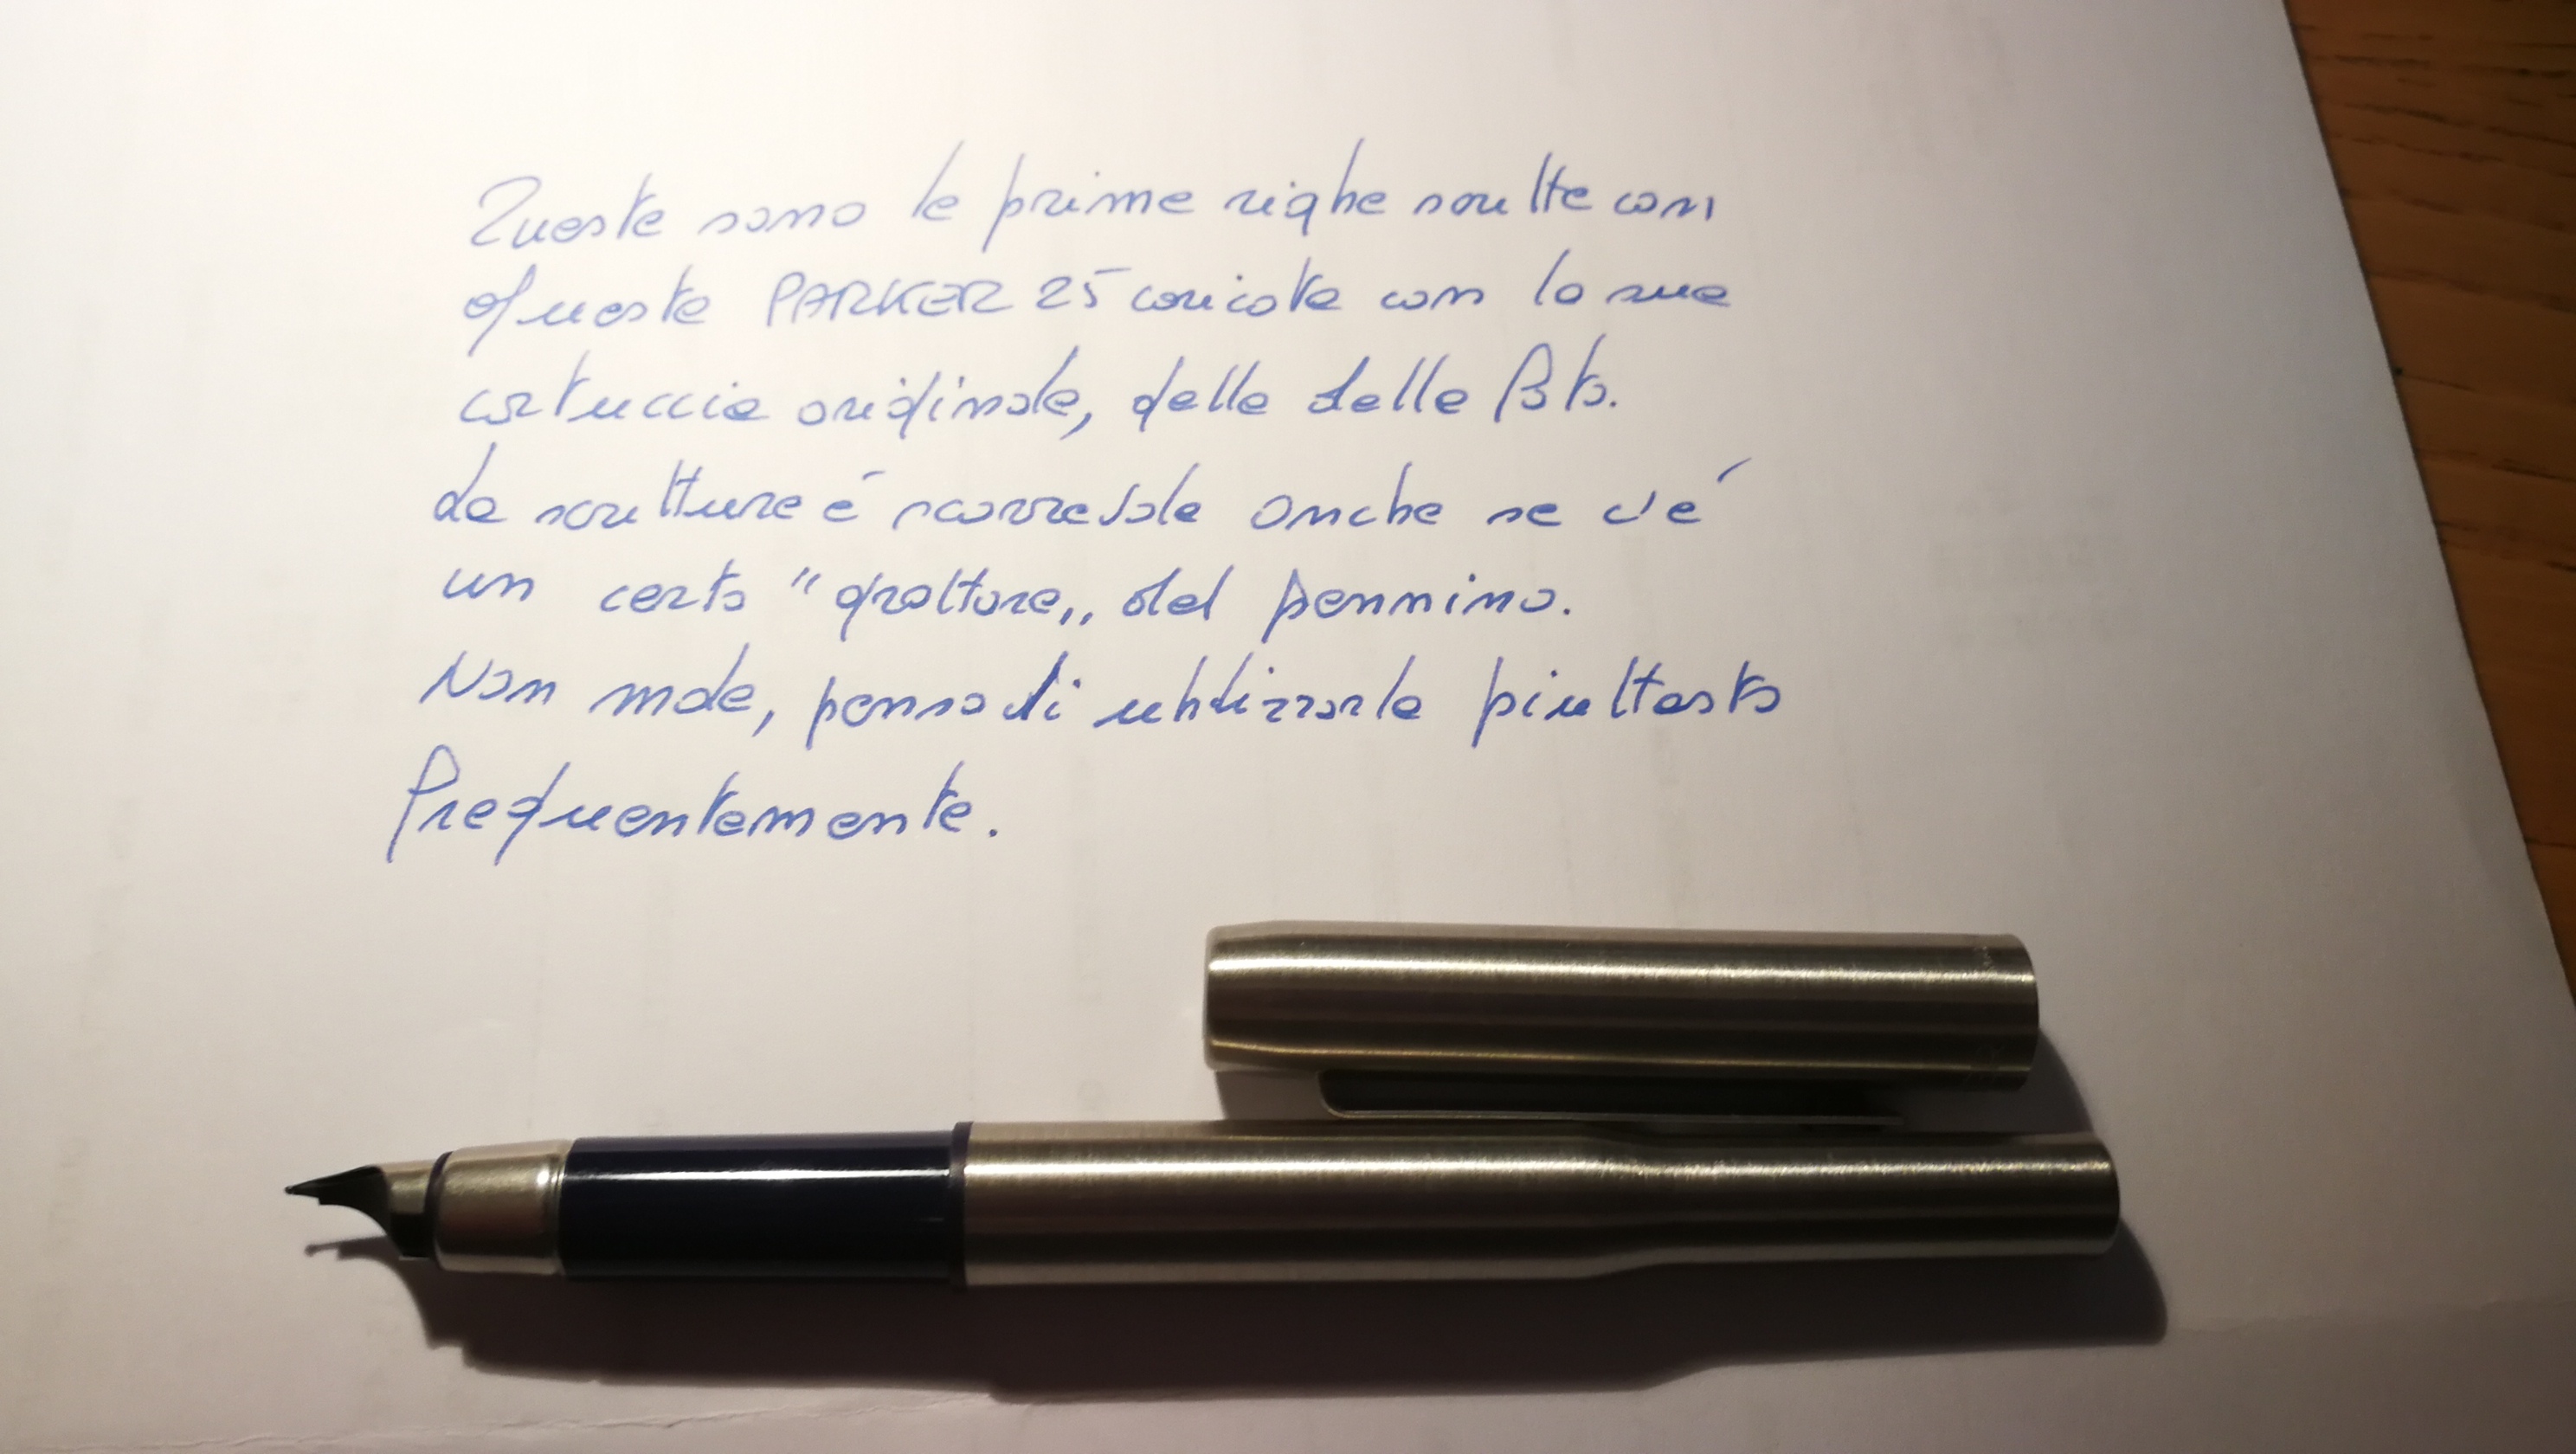 Queste sono le prime righe scritte con
questa PARKER 25 caricata con la sua
cartuccia originale, della della
La scrittura é scorrevole anche se c'é
un certo "grattare" del pennino.
Non male, penso di utilizzarla piuttosto
frequentemente.